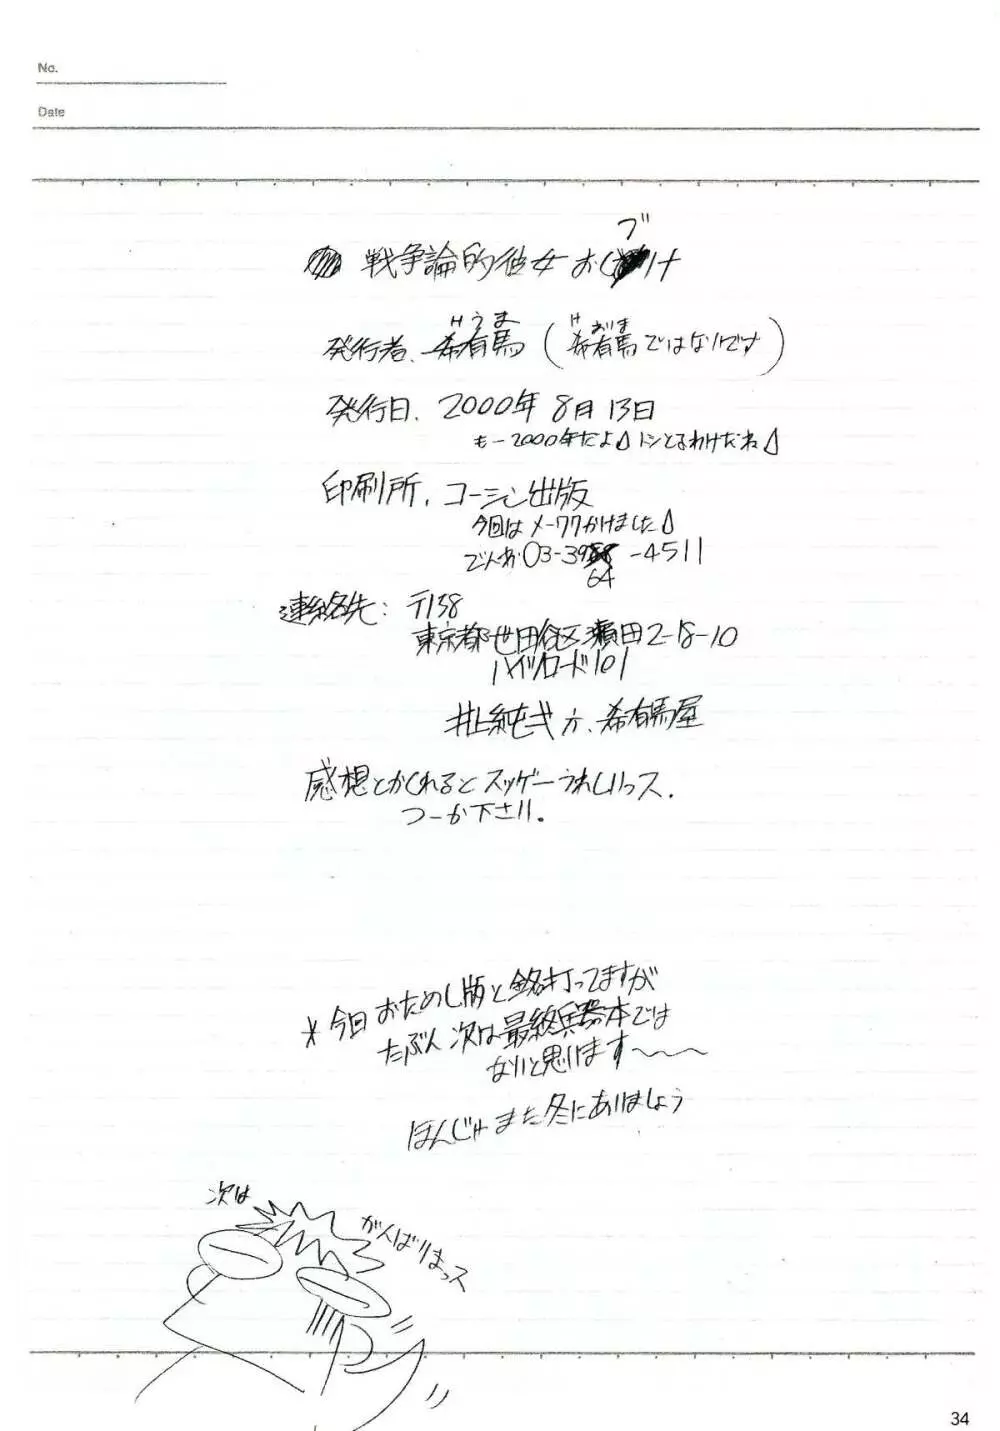 No.
Date
戦争論的彼女 おし ブ け
けうま
発行者. 希有馬 (希有馬ではないです)
けありま
発行日. 2000年 8月 13日
もー2000年だよ トシとるわけだね
印刷所. コーシン出版
今回はメーワクかけました
でんわ 03-39 -4511
64
連絡先: 〒158
東京都世田谷区瀬田2-18-10
ハイツロード101
井上純弌 方. 希有馬屋
感想とかくれるとスッゲーうれしいっス.
つーか下さい。
* 今回おためし版と銘打ってますが
たぶん次は最終兵器本では
ないと思います〜〜〜
ほんじゃまた冬にあいましょう
次は
がんばりまっス
34